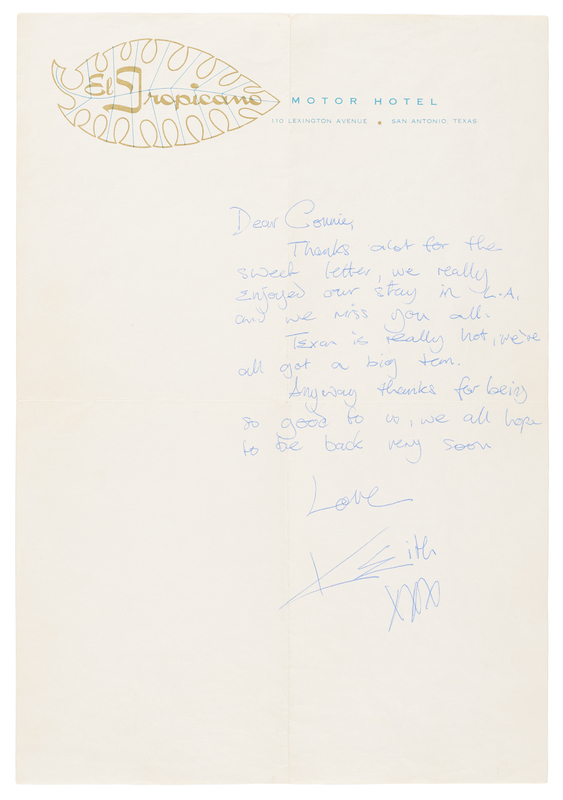 El Tropicano
MOTOR HOTEL
110 LEXINGTON AVENUE • SAN ANTONIO, TEXAS
Dear Connie,
Thanks alot for the
sweet letter, we really
enjoyed our stay in L.A.
and we miss you all.
Texas is really hot, we're
all got a big tan.
Anyway thanks for being
so good to us, we all hope
to be back very soon
Love
Keith
xxxx